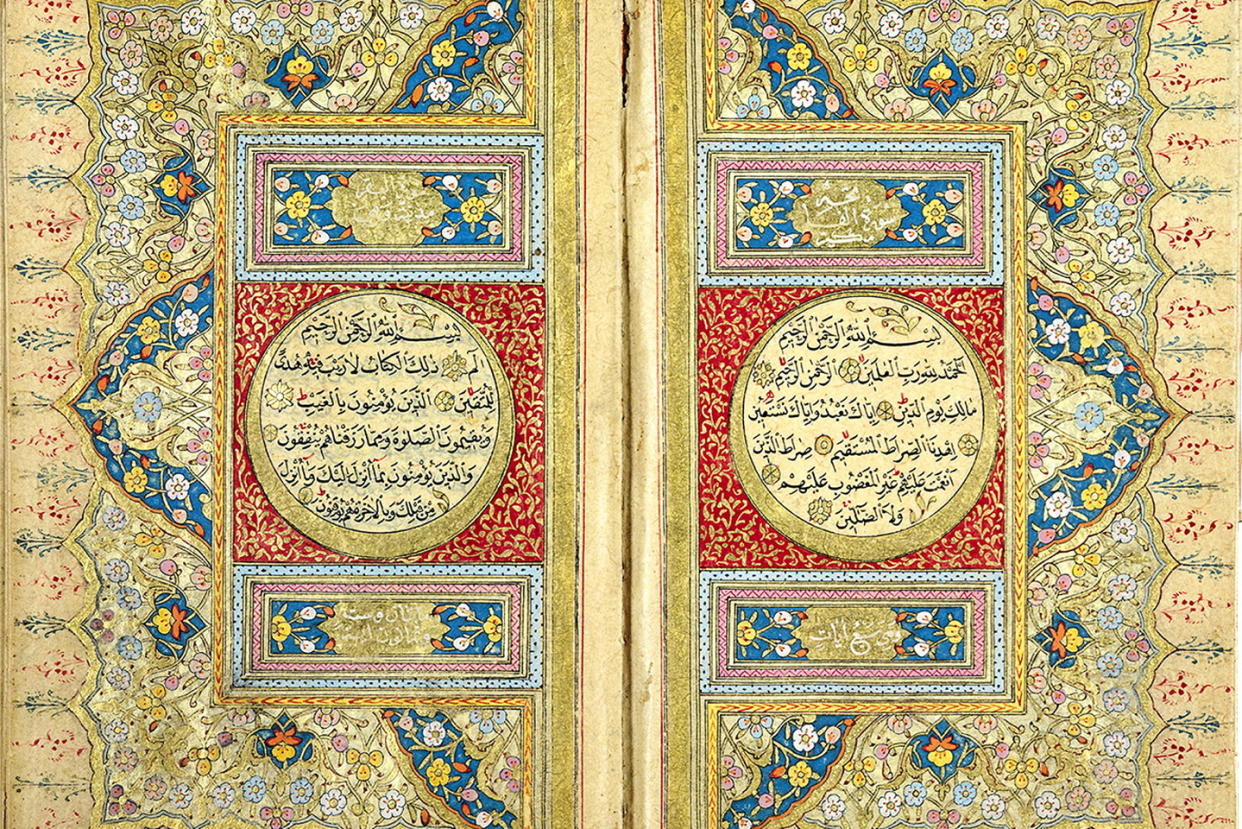 سورة الفاتحة
بِسْمِ اللهِ الرَّحْمٰنِ الرَّحِيمِ
اَلْحَمْدُ لِلّٰهِ رَبِّ الْعٰلَمِينَ الرَّحْمٰنِ الرَّحِيمِ
مَالِكِ يَوْمِ الدِّينِ اِيَّاكَ نَعْبُدُ وَاِيَّاكَ نَسْتَعِينُ
اِهْدِنَا الصِّرَاطَ الْمُسْتَقِيمَ صِرَاطَ الَّذِينَ
اَنْعَمْتَ عَلَيْهِمْ غَيْرِ الْمَغْضُوبِ عَلَيْهِمْ
وَلَا الضَّالِّينَ
سبع ايات
بِسْمِ اللهِ الرَّحْمٰنِ الرَّحِيمِ
الم ذٰلِكَ الْكِتَابُ لَا رَيْبَ فِيهِ هُدًى
لِلْمُتَّقِينَ اَلَّذِينَ يُؤْمِنُونَ بِالْغَيْبِ
وَيُقِيمُونَ الصَّلٰوةَ وَمِمَّا رَزَقْنَاهُمْ يُنْفِقُونَ
وَالَّذِينَ يُؤْمِنُونَ بِمَا اُنْزِلَ اِلَيْكَ وَمَا اُنْزِلَ
مِنْ قَبْلِكَ وَبِالْاٰخِرَةِ هُمْ يُوقِنُونَ